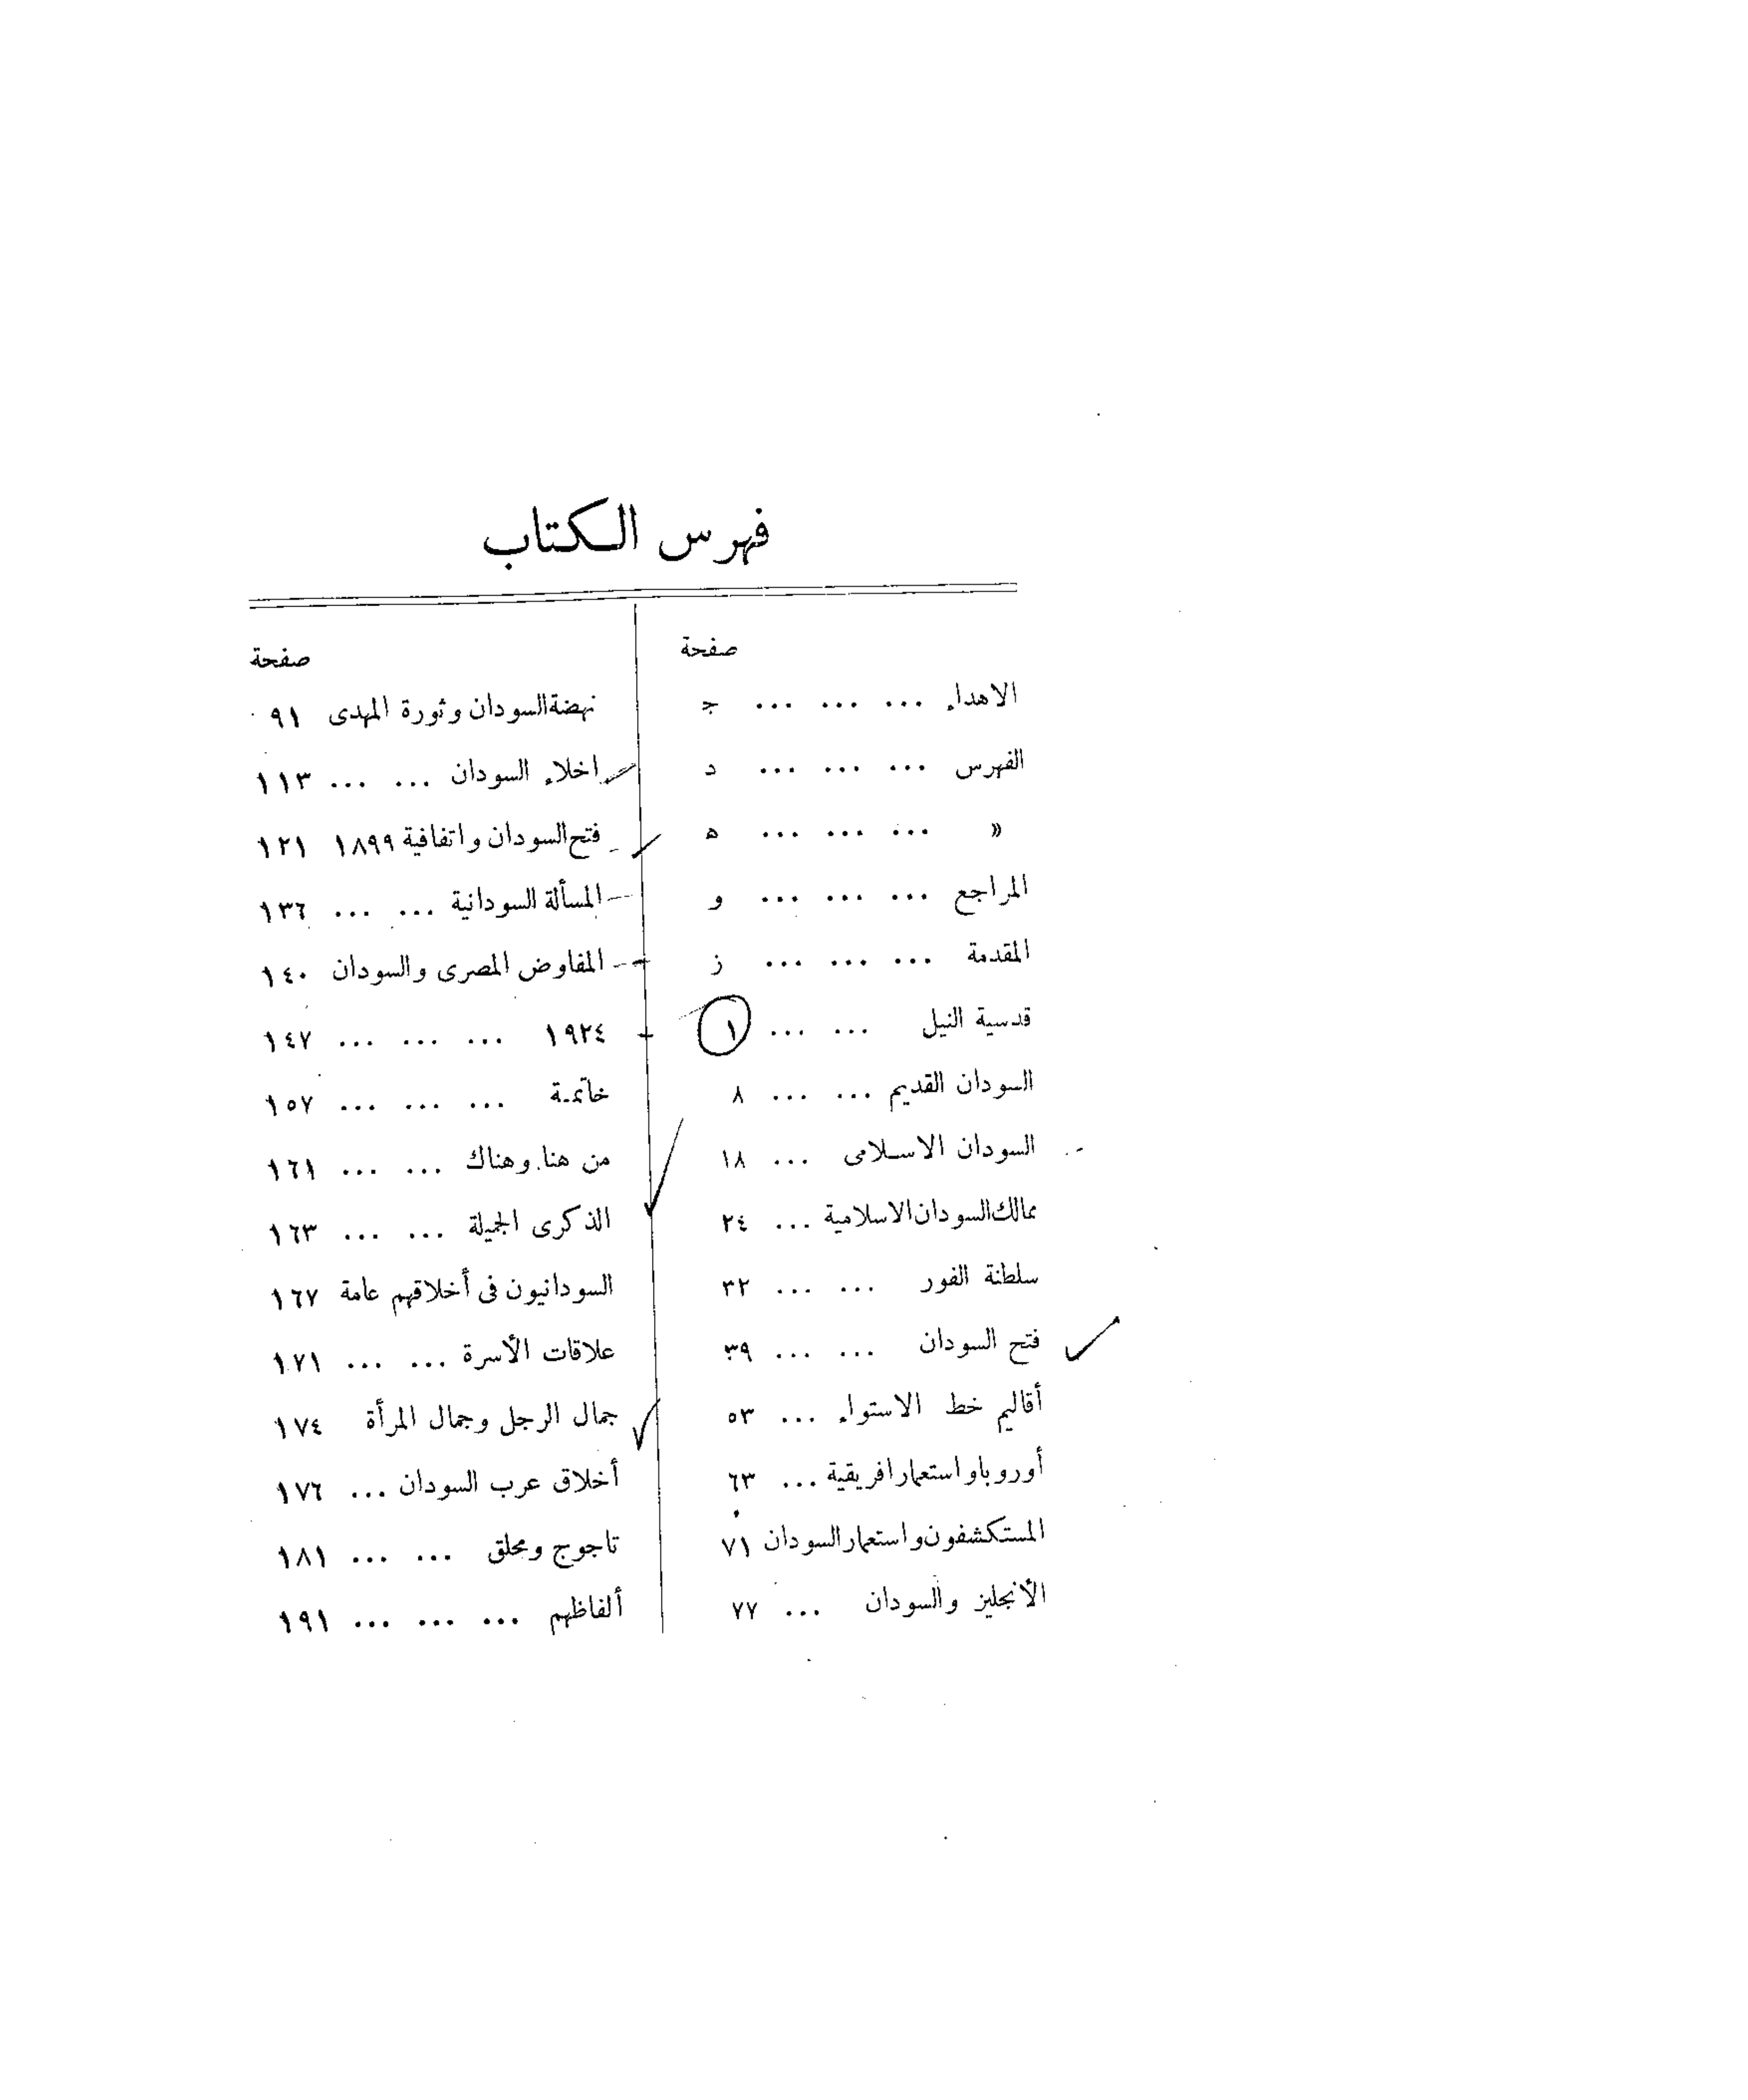 فهرس الكتاب
صفحة
الاهداء ... ... ... ج
الفهرس ... ... ... د
» ... ... ... ه
المراجع ... ... ... و
المقدمة ... ... ... ز
قدسية النيل ... ... ١
السودان القديم ... ... ٨
السودان الاسلامى ... ١٨
ممالك السودان الاسلامية ... ٢٤
سلطنة الفور ... ... ٣٢
فتح السودان ... ... ٣٩
أقاليم خط الاستواء ... ٥٣
أوروبا واستعمار افريقية ... ٦٣
المستكشفون واستعمار السودان ٧١
الأنجليز والسودان ... ٧٧
صفحة
نهضة السودان وثورة المهدى ٩١
اخلاء السودان ... ... ١١٣
فتح السودان واتفاقية ١٨٩٩ ١٢١
المسألة السودانية ... ... ١٣٦
المفاوض المصرى والسودان ١٤٠
١٩٢٤ ... ... ... ١٤٧
خاتمة ... ... ... ١٥٧
من هنا وهناك ... ... ١٦١
الذكرى الجميلة ... ... ١٦٣
السودانيون فى أخلاقهم عامة ١٦٧
علاقات الأسرة ... ... ١٧١
جمال الرجل وجمال المرأة ١٧٤
أخلاق عرب السودان ... ١٧٦
تاجوج ومحلق ... ... ١٨١
ألفاظهم ... ... ... ١٩١